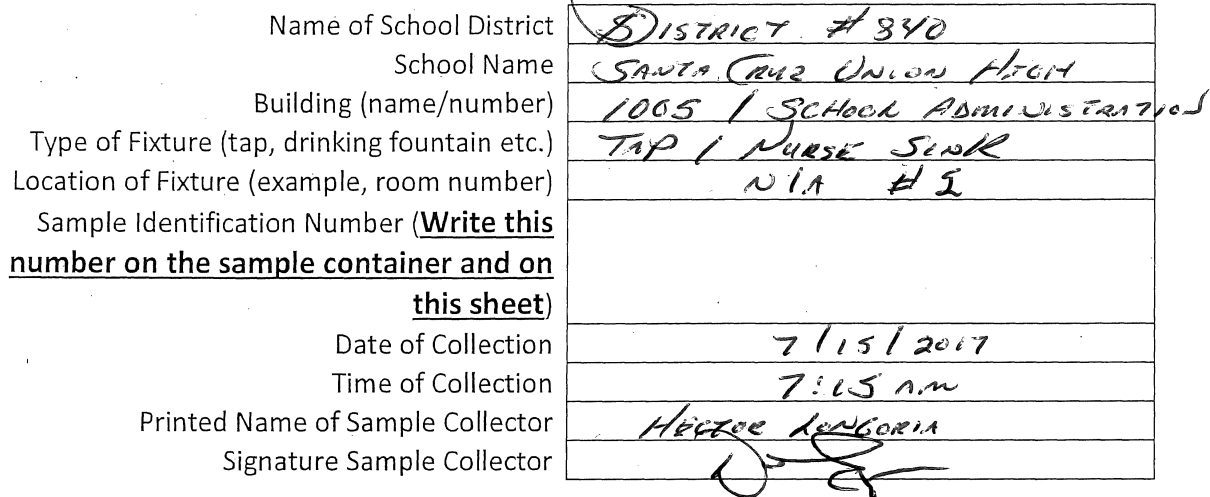 Name of School District DISTRICT # 840
School Name SANTA CRUZ UNION HIGH
Building (name/number) 1005 / SCHOOL ADMINISTRATION
Type of Fixture (tap, drinking fountain etc.) TAP / NURSE SINK
Location of Fixture (example, room number) N/A # 1
Sample Identification Number (Write this
number on the sample container and on
this sheet)
Date of Collection 7/15/2017
Time of Collection 7:15 AM
Printed Name of Sample Collector HECTOR LONGORIA
Signature Sample Collector